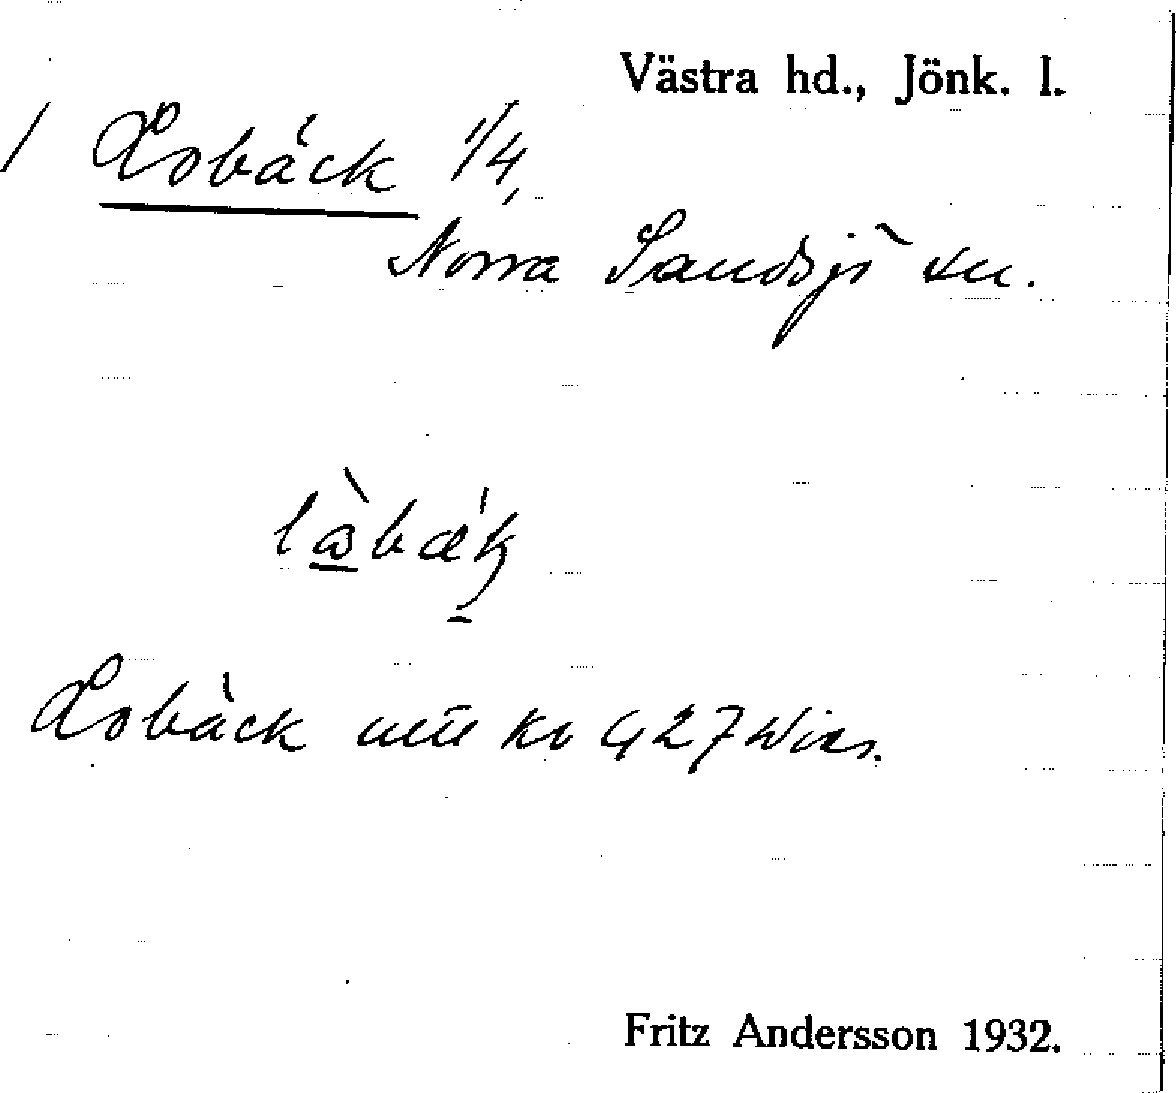 Västra hd., Jönk. l.
/ Lobäck 1/4,
Norra Sandsjö sn.
Lobäck Wies.
Fritz Andersson 1932.